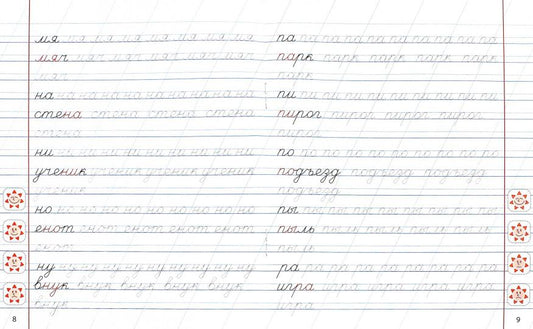 мя мя мя мя мя мя мя мя
мяч мяч мяч мяч мяч мяч
мяч
на на на на на на на на на на
стена стена стена стена
стена
ни ни ни ни ни ни ни ни ни
ученик ученик ученик ученик
ученик
но но но но но но но но но
енот енот енот енот енот
енот
ну ну ну ну ну ну ну ну ну
внук внук внук внук внук
внук
8
па па па па па па па па па па
парк парк парк парк парк
парк
пи пи пи пи пи пи пи пи пи
пирог пирог пирог пирог
пирог
по по по по по по по по по
подъезд подъезд подъезд
подъезд
пы пы пы пы пы пы пы пы
пыль пыль пыль пыль пыль
пыль
ра ра ра ра ра ра ра ра ра
игра игра игра игра игра
игра
9